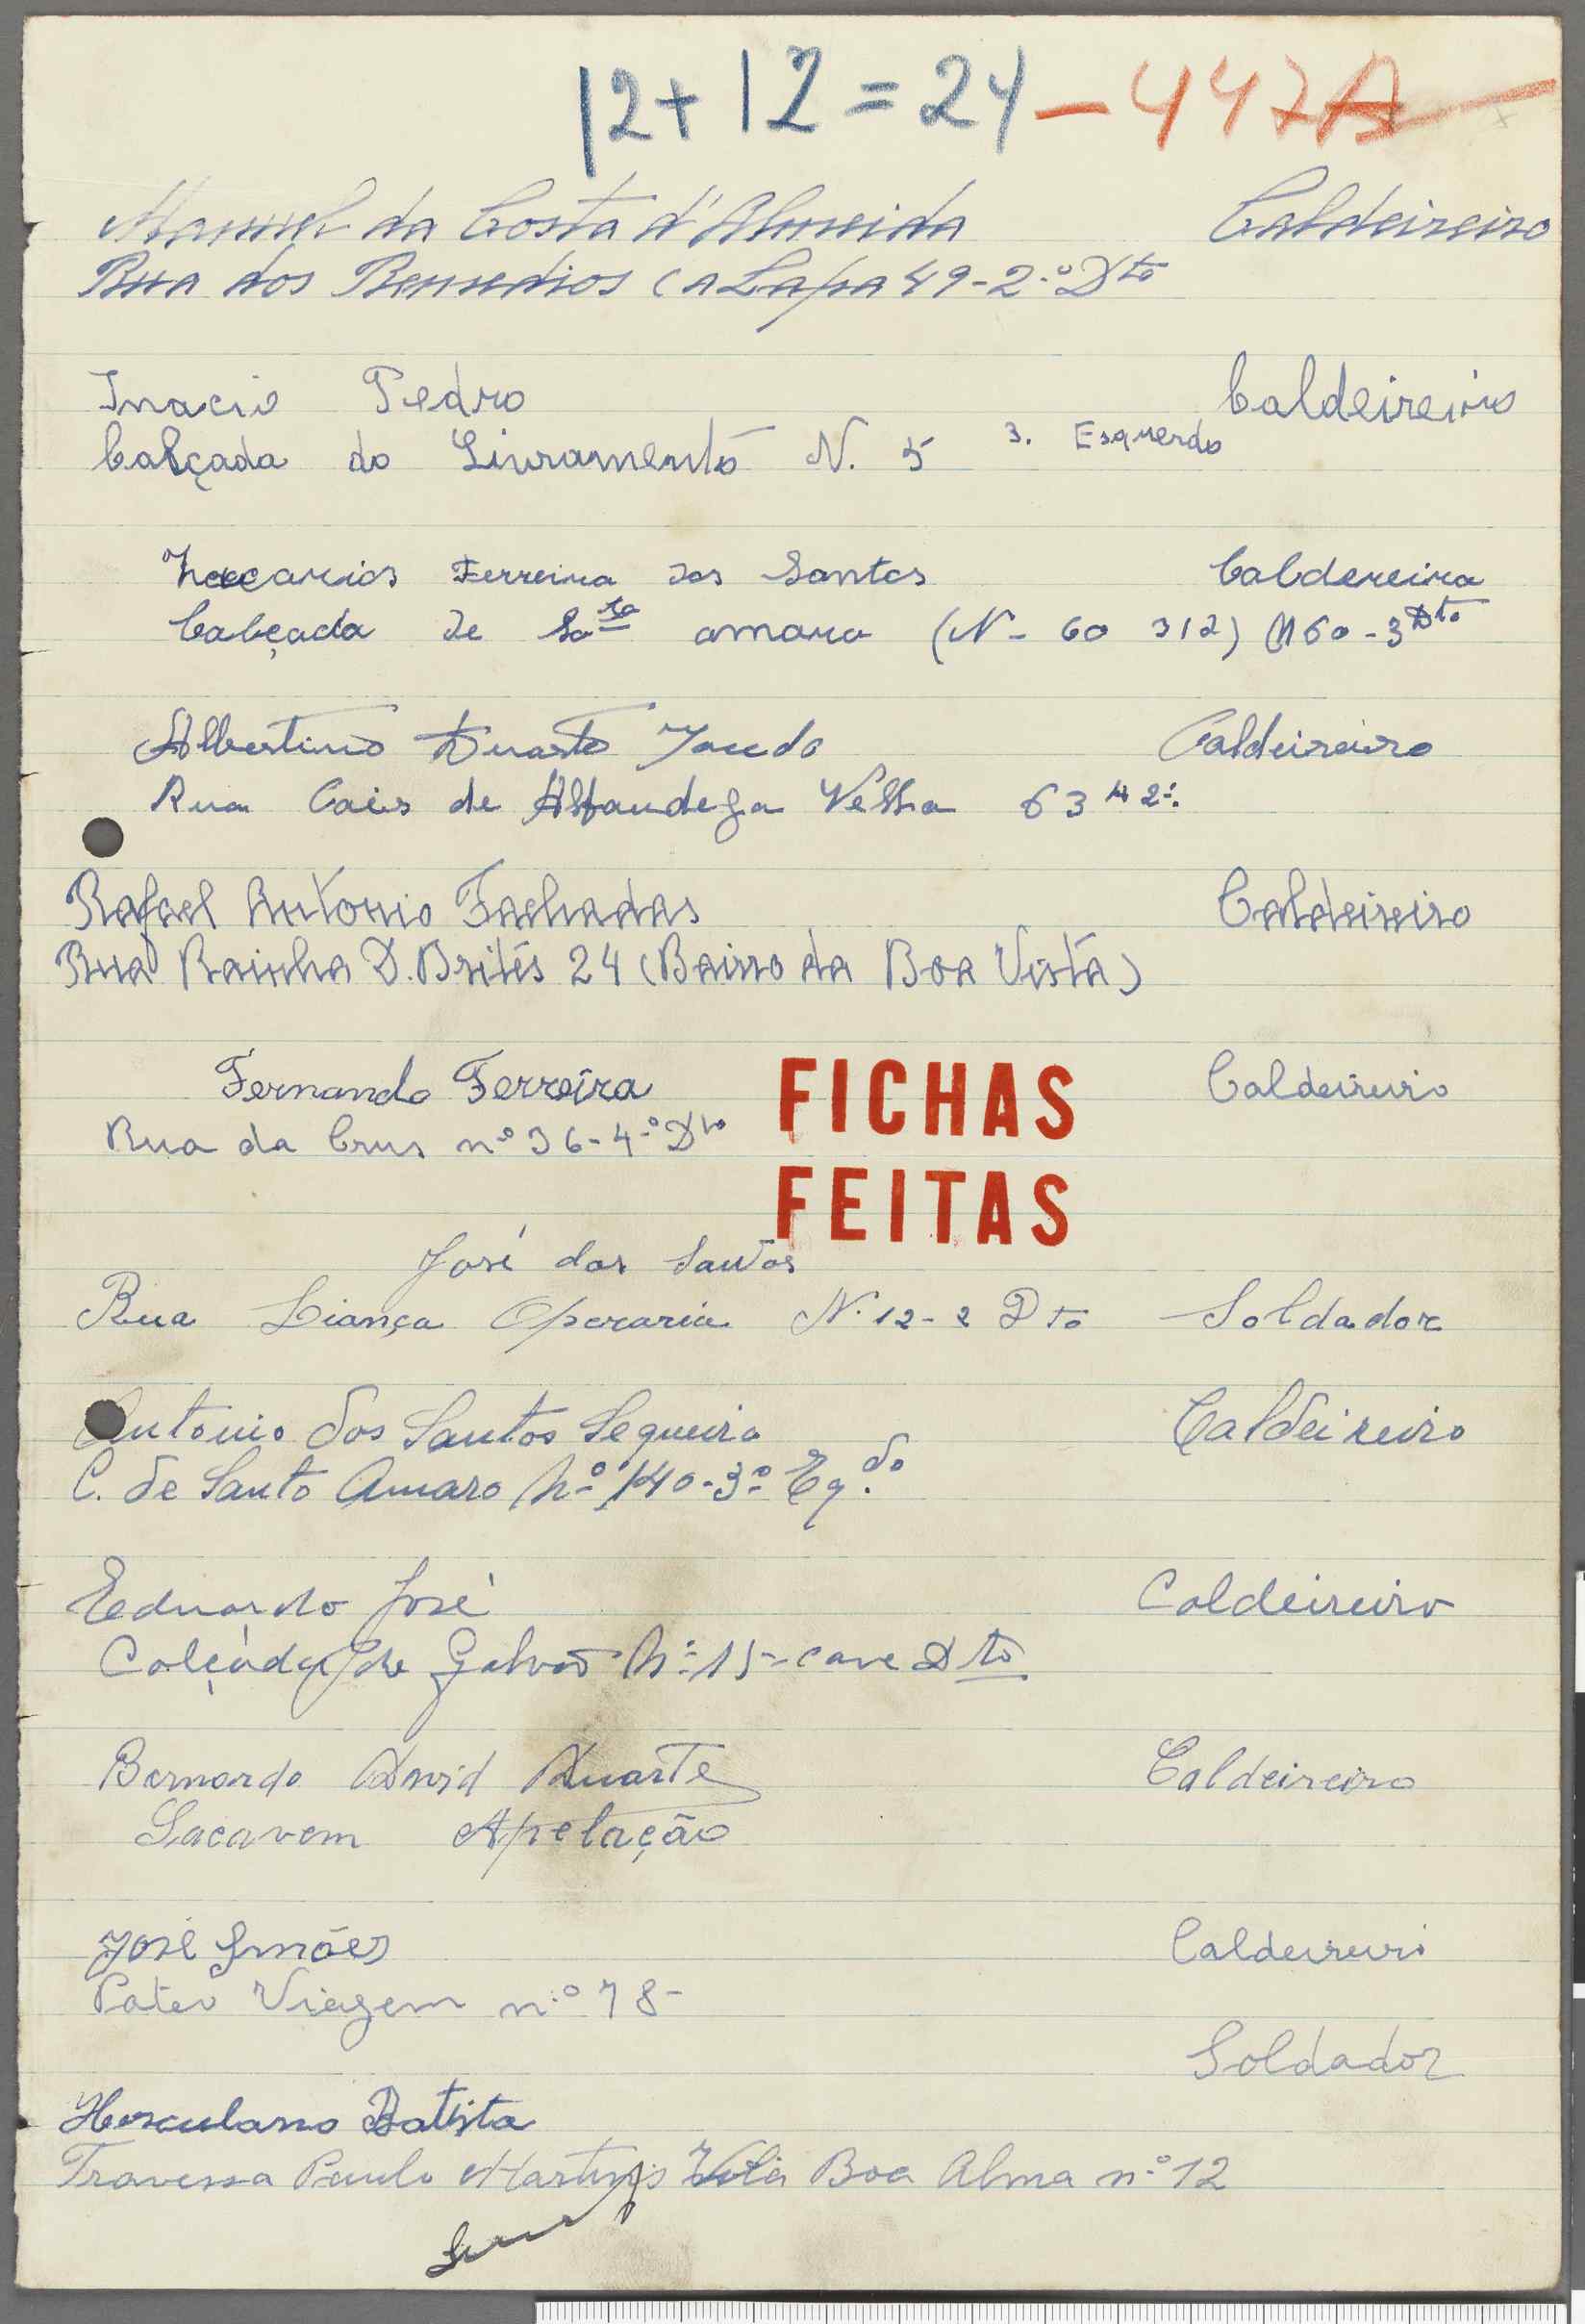 12 + 12 = 24 - 447A
Manuel da Costa d'Almeida Caldeireiro
Rua dos Remedios (a Lapa 49-2.º Dto
Inacio Pedro Caldeireiro
Calçada do Livramento N. 5 3. Esquerdo
Zacarias Ferreira dos Santos Caldereira
Calçada de amaro (N- 60 3/2) (N 60-3 Dto
Albertino Duarte Caldeireiro
Rua Cais de Alfandega Velha 63 2º.
Rafael Antonio Fachadas Caldeireiro
Rua Rainha D. Brités 24 (Bairro da Boa Vista)
Fernando Ferreira Caldeireiro
Rua da Crus nº 36-4.º Dto
FICHAS
FEITAS
José dos Santos
Rua Liança Operaria N. 12-2 Dto Soldador
Antonio dos Santos Sequeira Caldeireiro
C. de Santo Amaro Nº 140-3º Eq.do
Eduardo José Caldeireiro
Calçada de Galvão Nº 15-cave Dto
Bernardo David Duarte Caldeireiro
Sacavem Apelação
José Simões Caldeireiro
Pateo Viagem n.º 78-
Soldador
Herculano Batista
Travessa Paulo Martins Vila Boa Alma n.º 12